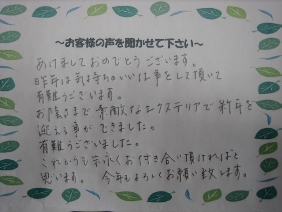 ～お客様の声を聞かせて下さい～
あけましておめでとうございます。
昨年は気持ちのいい仕事をして頂いて
有難うございます。
お陰さまで素敵なエクステリアで新年を
迎える事ができました。
有難うございました。
これからも末永くお付き合い頂ければと
思います。 今年もよろしくお願い致します。